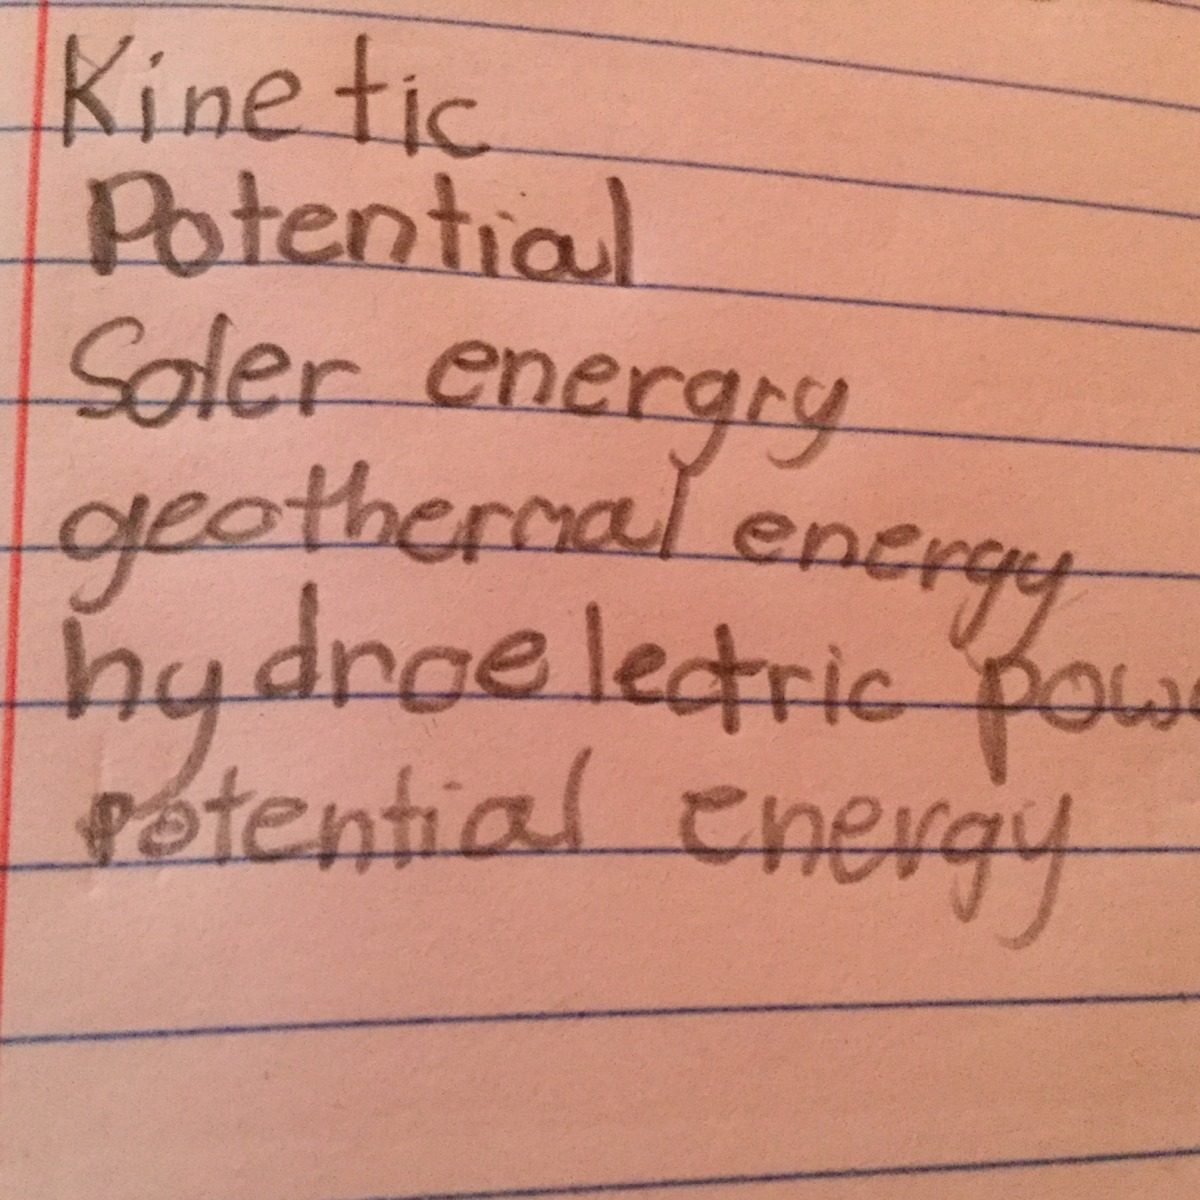 Kinetic
Potential
Soler energry
geothermal energy
hydroelectric powe
potential energy